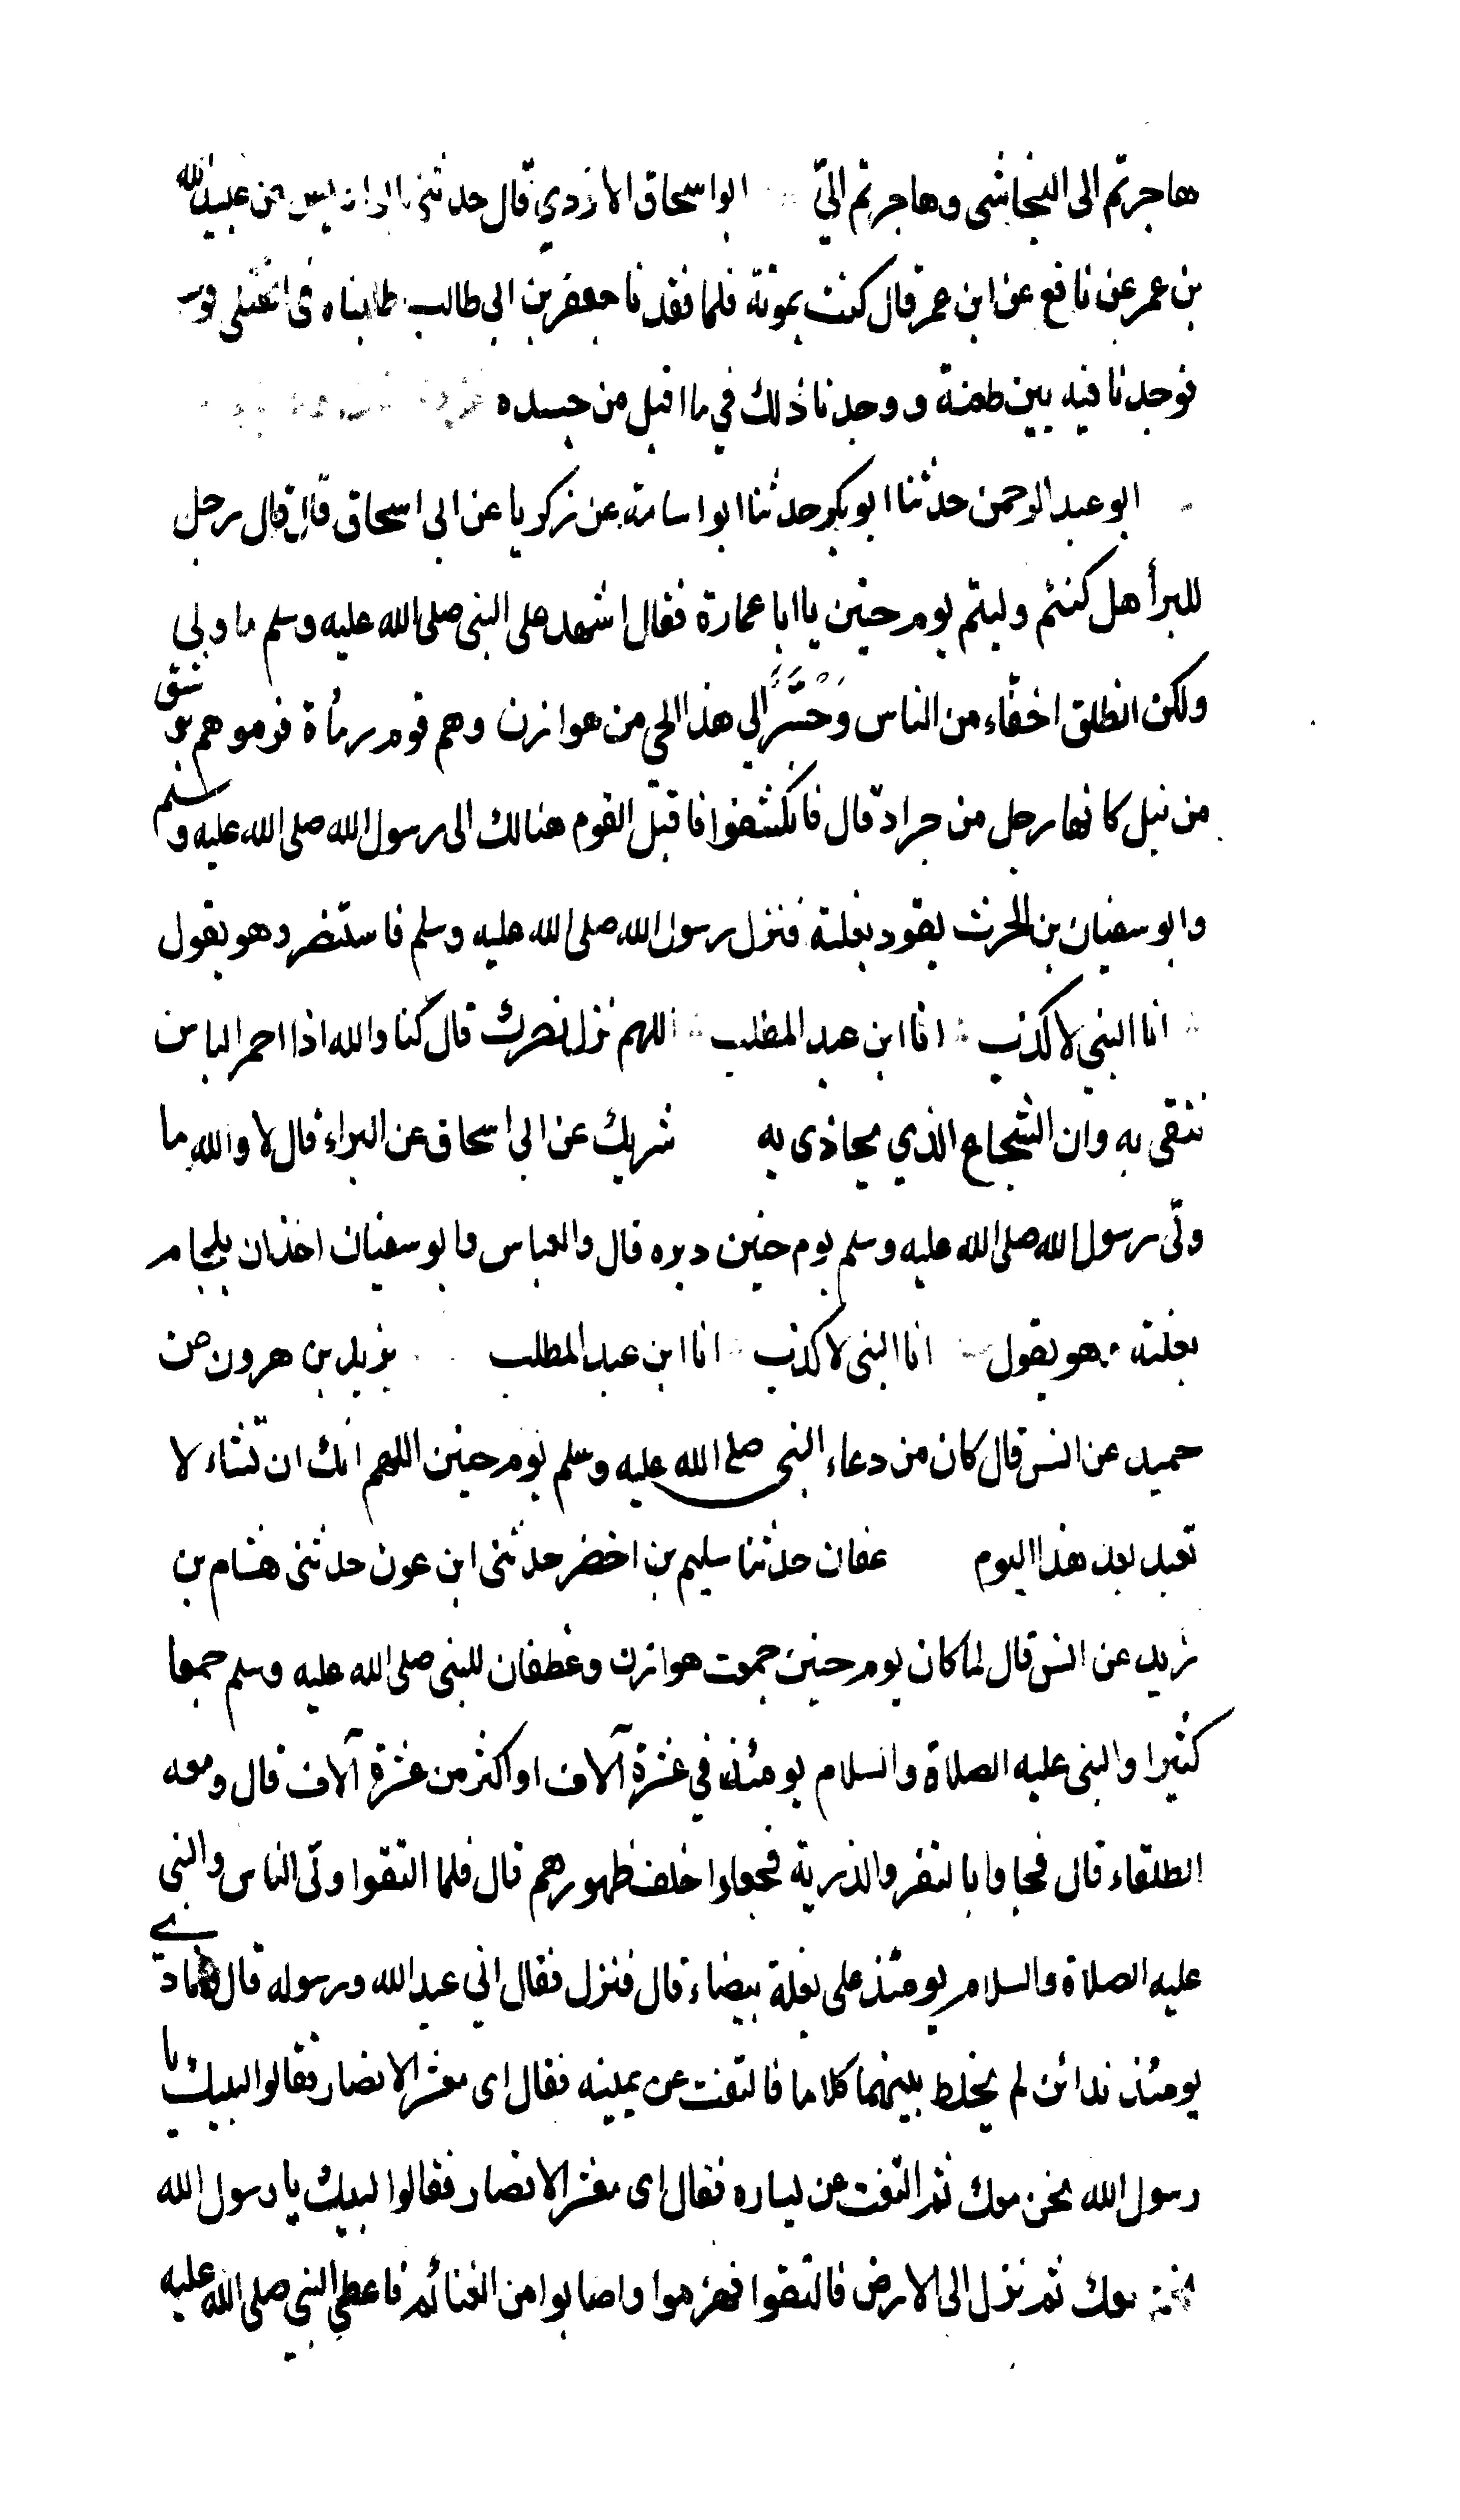 هاجرتم الى النجاشى وهاجرتم الىّ ابو اسحاق الازدي قال حدثنى ابو اويس عن عبيد الله
بن عمر عن نافع عن ابن عمر قال كنت بموتة فلما فقدنا جعفر بن ابى طالب طلبناه فى القتلى
فوجدنا فيه بين طعنة و ووجدنا ذلك في ما اقبل من جسده
ابو عبد الرحمن حدثنا ابو بكر حدثنا ابو اسامة عن زكريا عن ابى اسحاق قال قال رجل
للبرأ هل كنتم وليتم يوم حنين يا ابا عمارة فقال اشهد على النبى صلى الله عليه وسلم ما ولى
ولكن انطلق اخفاء من الناس وَحُسَّرٌ الى هذا الحي من هوازن وهم قوم رماة فرموهم برشق
من نبل كانها رجل من جراد قال فانكشفوا فاقبل القوم هنالك الى رسول الله صلى الله عليه وسلم
وابو سفيان بن الحرث يقود بغلته فنزل رسول الله صلى الله عليه وسلم فاستنصر وهو يقول
انا النبى لا كذب انا ابن عبد المطلب اللهم نزل نصرك قال كنا والله اذا احمر الباس
نتقى به وان الشجاع الذي يحاذى به شريك عن ابى اسحاق عن البراء قال لا والله ما
ولّى رسول الله صلى الله عليه وسلم يوم حنين دبره قال والعباس وابو سفيان اخذان بلجام
بغلته وهو يقول انا النبى لا كذب انا ابن عبد المطلب يزيد بن هرون عن
حميد عن انس قال كان من دعاء النبى صلى الله عليه وسلم يوم حنين اللهم انك ان تشاء لا
تعبد بعد هذا اليوم عفان حدثنا سليم بن اخضر حدثنى ابن عون حدثنى هشام بن
زيد عن انس قال لما كان يوم حنين جمعت هوازن وغطفان للنبى صلى الله عليه وسلم جمعا
كثيرا والنبى عليه الصلاة والسلام يومئذ في عشرة آلاف او اكثر من عشرة آلاف قال ومعه
الطلقاء قال فجاوا بالنفر والذرية فجعلوا خلف ظهورهم قال فلما التقوا ولّى الناس والنبى
عليه الصلاة والسلام يومئذ على بغلة بيضاء قال فنزل فقال اني عبد الله ورسوله قال ونادى
يومئذ ندائن لم يخلط بينهما كلاما فالتفت عن يمينه فقال اى معشر الانصار فقالوا لبيك يا
رسول الله نحن معك ثم التفت عن يساره فقال اى معشر الانصار فقالوا لبيك يا رسول الله
نحن معك ثم نزل الى الارض فالتقوا فهزموا واصابوا من الغنائم فاعطى النبي صلى الله عليه